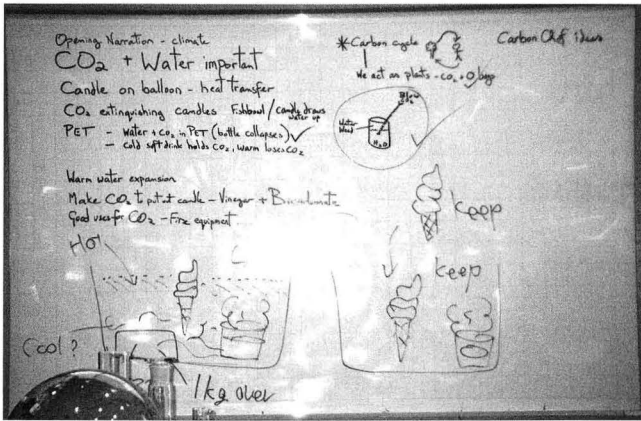 Opening Narration - climate
CO2 + Water important
Candle on balloon - heat transfer
CO2 extinguishing candles Fishbowl/candle draws water up
PET - water + CO2 in PET (bottle collapses) ✓
- cold soft drink holds CO2, warm loses CO2
Warm water expansion
Make CO2 to put out candle - Vinegar + Bicarbonate
Good uses for CO2 - Fire equipment
* Carbon cycle
We act as plants - CO2 + O
Carbon Chef ideas
Water
Weed
H2O
keep
keep
HOT
Cool ?
1kg over